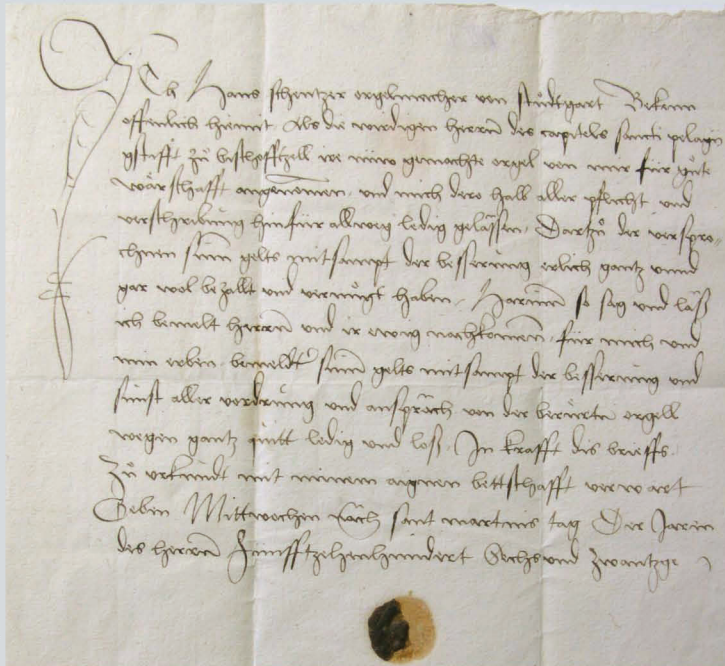 Ich Hans schentzer orgelmacher von studtgart Bekenn
offenlich hiemit Als die wirdigen herrn des capitels sancti pelagii
gstifft zů bischoffzell ire niw gemachte orgel von mir für gůte
wärschafft angenomen, und mich dero halb aller pflicht und
verschribung hinfür allweg ledig gelässen, Dartzů der verspro-
chnen sum gelts mitsampt der besserung erlich gantz unnd
gar wol bezallt und vernůgt haben, Harumb so sag und läß
ich bemelt herrn und ir ewig nachkomen, für mich und
min erben bemeldter sum gelts mitsampt der besserung und
sunst aller vordrung und anspräch von der berürten orgell
wegen gantz quitt ledig und loß, In krafft dis brieffs.
Zů urkundt mit minem aignen bettschafft verwart
Geben Mittwochen näch sant martins tag Der Jaren
des herren Fünfftzehenhundert Sechs und zwantzge